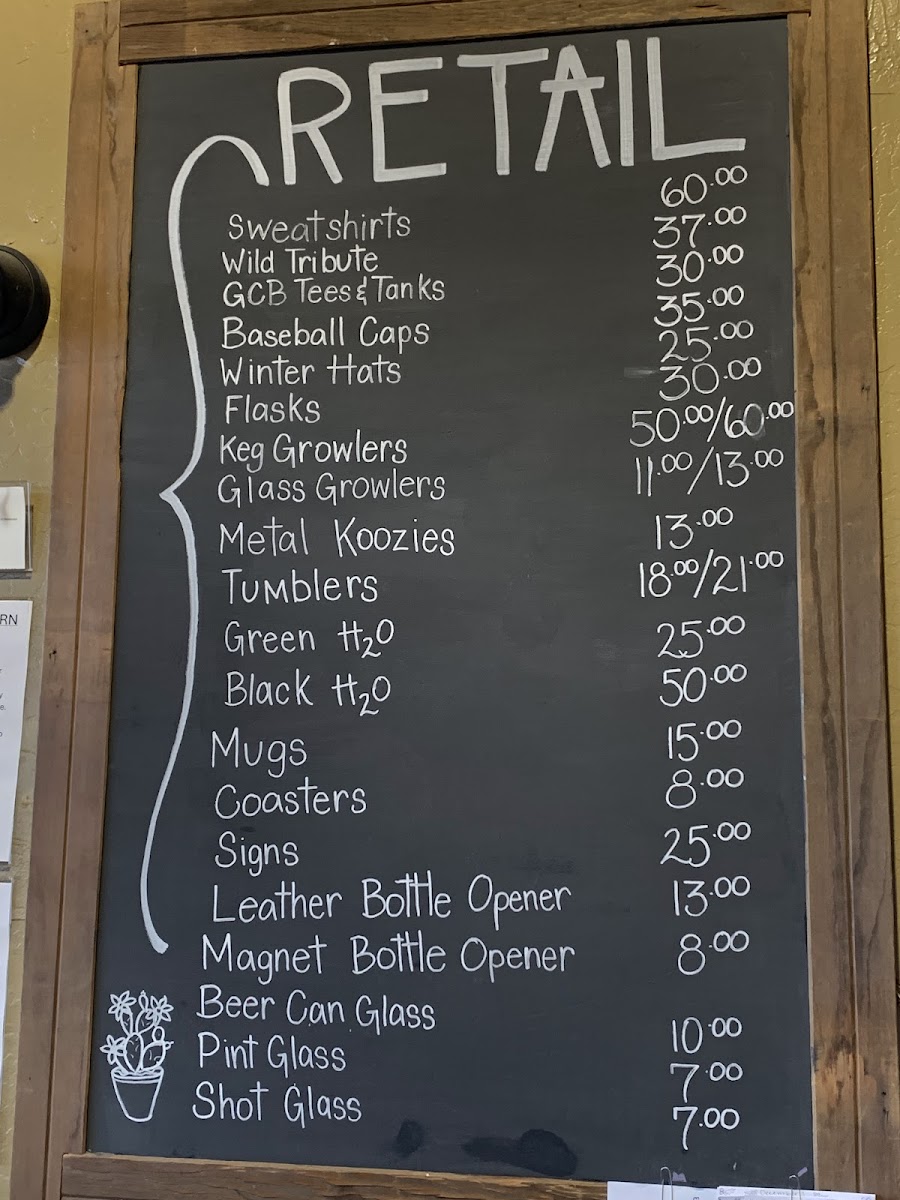 RETAIL
Sweatshirts 60.00
Wild Tribute 37.00
GCB Tees & Tanks 30.00
Baseball Caps 35.00
Winter Hats 25.00
Flasks 30.00
Keg Growlers 50.00/60.00
Glass Growlers 11.00/13.00
Metal Koozies 13.00
Tumblers 18.00/21.00
Green H₂O 25.00
Black H₂O 50.00
Mugs 15.00
Coasters 8.00
Signs 25.00
Leather Bottle Opener 13.00
Magnet Bottle Opener 8.00
Beer Can Glass 10.00
Pint Glass 7.00
Shot Glass 7.00
RN